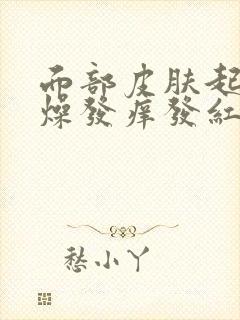 面部皮肤起
燥發痒發紅
愁小丫